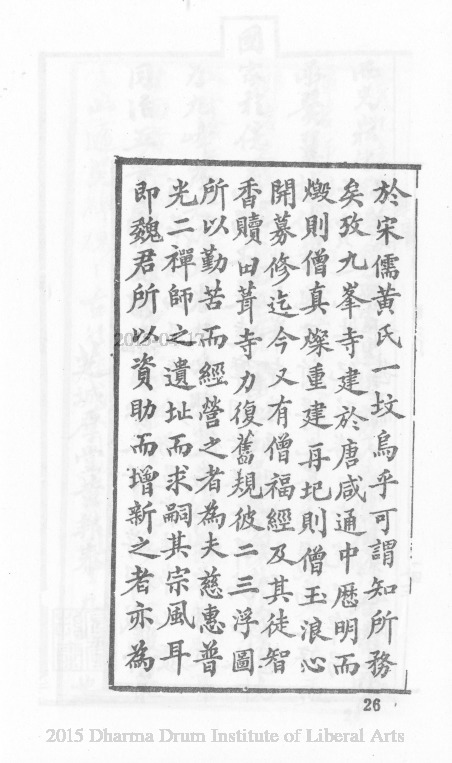 於宋儒黃氏一墳烏乎可謂知所務
矣攷九峯寺建於唐咸通中歷明而
燬則僧真燦重建再圯則僧玉浪心
開募修迄今又有僧福經及其徒智
香贖田葺寺力復舊規彼二三浮圖
所以勤苦而經營之者為夫慈惠普
光二禪師之遺址而求嗣其宗風耳
即魏君所以資助而增新之者亦為
26
2015 Dharma Drum Institute of Liberal Arts